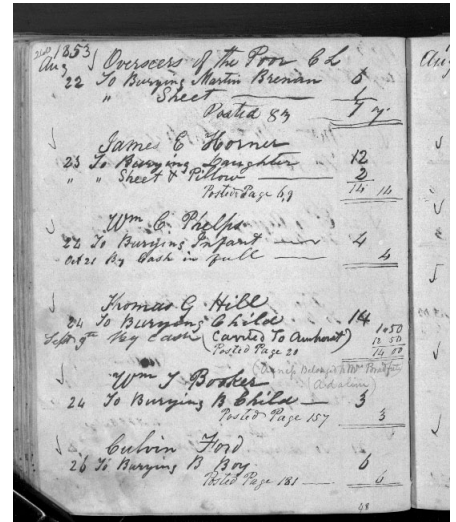 1853
Aug Overseers of the Poor C L
22 To Burying Martin Brenan 6
" Sheet 1
Posted 83 7 7
James E Horner
23 To Burying Daughter 12
" " Sheet & Pillow 2
Posted Page 69 14 14
Wm C. Phelps
22 To Burying Infant 4
Oct 21 By Cash in full 4
Thomas G. Hill
24 To Burying Child 14
Sept 9th By Cash (Carried To Amherst) 1.050
Posted Page 20
14 00
Wm J Booker
24 To Burying B Child 3
Posted Page 157 3
Culvin Ford
26 To Burying B Boy 6
Posted Page 181 6